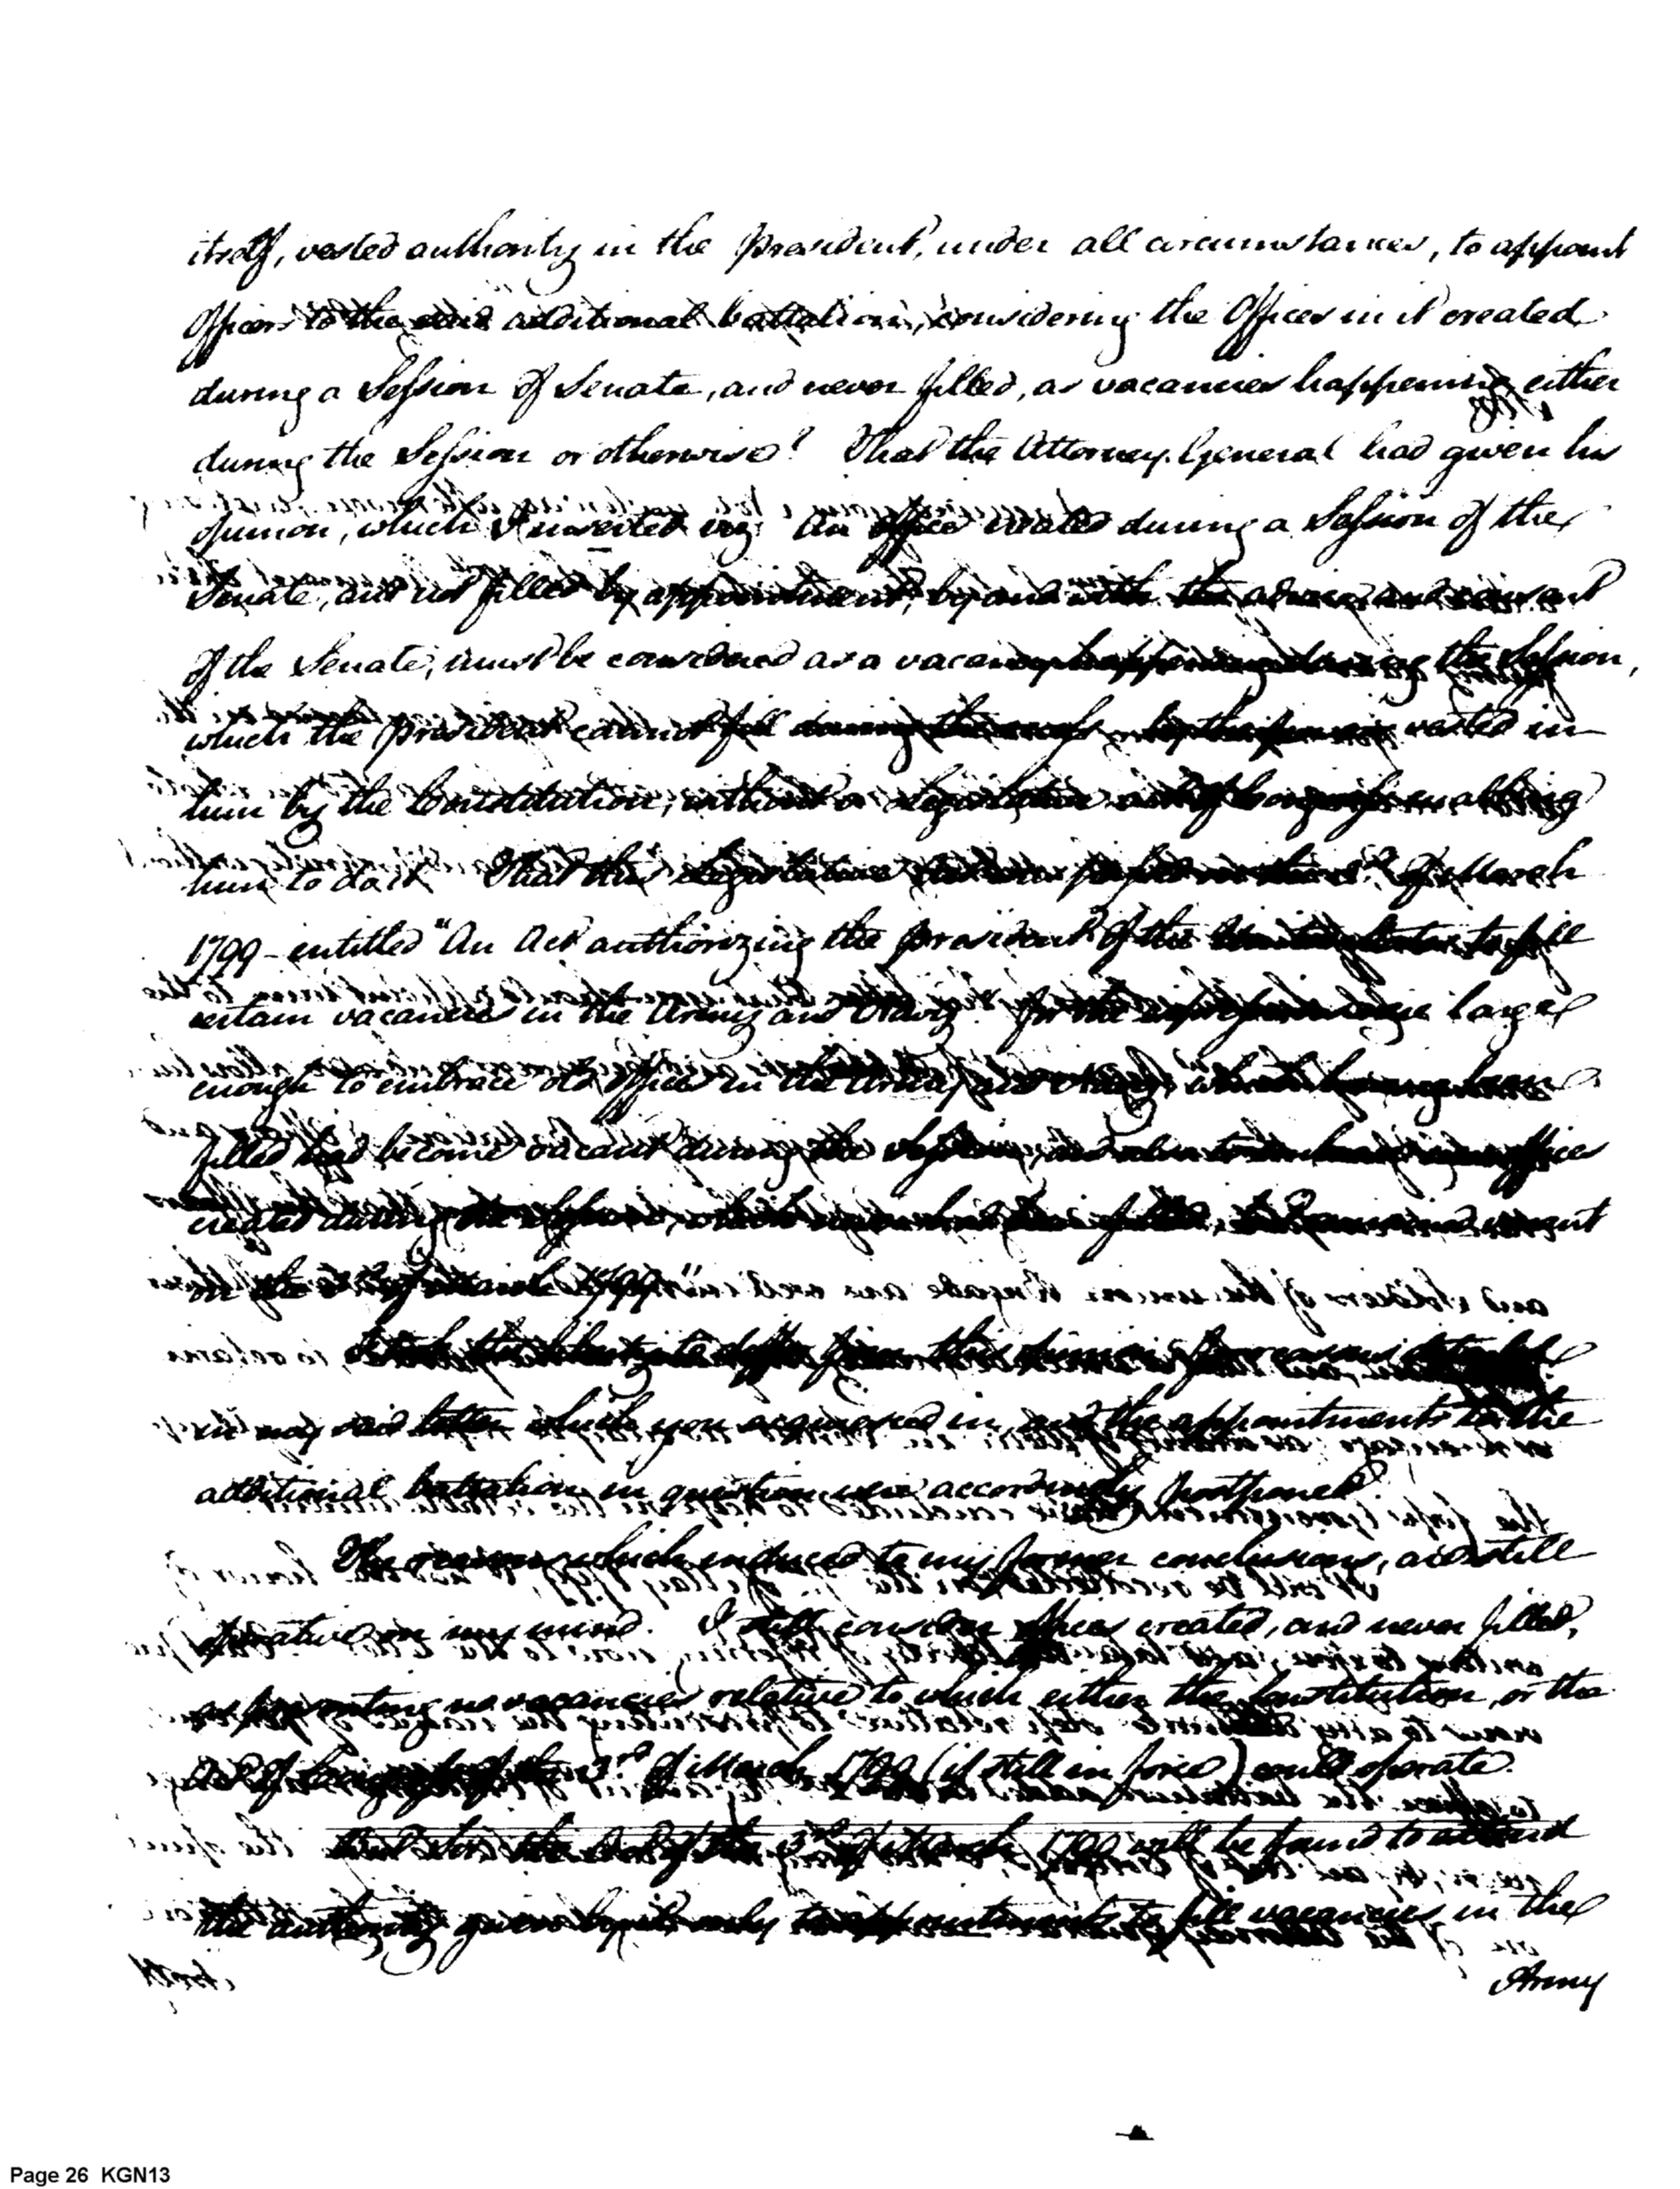 itself, vested authority in the President, under all circumstances, to appoint
Officers to the said additional battalion, considering the Offices in it created
during a Session of Senate, and never filled, as vacancies happening either
during the Session or otherwise? That the Attorney General had given his
opinion, which I inserted viz: An office created during a Session of the
Senate, and not filled by appointment, by and with the advice and consent
of the Senate, must be considered as a vacancy happening during the Session,
which the President cannot fill during the recess, by the power vested in
him by the Constitution, without a legislative act of Congress enabling
him to do it That the legislative of March
1799 - entitled "An Act authorizing the President of the United States to fill
certain vacancies in the Army and Navy" for the large
enough to embrace old offices in the Army and Navy, which having been
filled had become vacant during the Session, and also to embrace offices
created during the Session, which never had been filled, vacant
on the 3 of March 1799"
I took the liberty to differ from this opinion for reasons detailed
in my said letter which you acquiesced in, and the appointments to the
additional battalion in question were accordingly postponed
The reasons which induced to my former conclusions, are still
operative in my mind. I still consider offices created, and never filled,
as presenting no vacancies relative to which either the Constitution, or the
Act of Congress of the 3rd of March 1799 (if still in force) could operate.
the Act of the 3rd of March 1799 will be found to extend
the authority given by it only to appointments to fill vacancies in the
Army
Page 26 KGN13